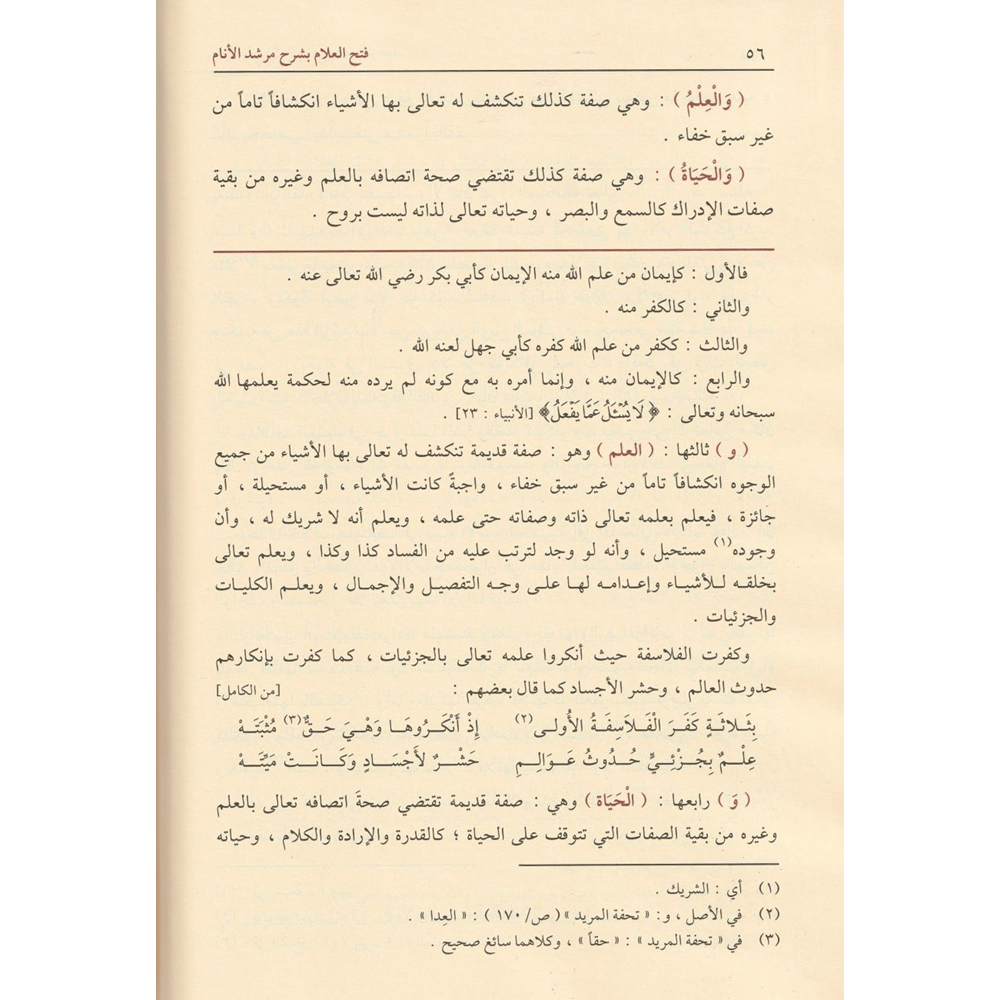 ٥٦ فتح العلام بشرح مرشد الأنام
( وَالْعِلْمُ ) : وهي صفة كذلك تنكشف له تعالى بها الأشياء انكشافاً تاماً من
غير سبق خفاء .
( وَالْحَيَاةُ ) : وهي صفة كذلك تقتضي صحة اتصافه بالعلم وغيره من بقية
صفات الإدراك كالسمع والبصر ، وحياته تعالى لذاته ليست بروح .
فالأول : كإيمان من علم الله منه الإيمان كأبي بكر رضي الله تعالى عنه .
والثاني : كالكفر منه .
والثالث : ككفر من علم الله كفره كأبي جهل لعنه الله .
والرابع : كالإيمان منه ، وإنما أمره به مع كونه لم يرده منه لحكمة يعلمها الله
سبحانه وتعالى : ﴿ لَا يُسْـَٔلُ عَمَّا يَفْعَلُ﴾ [الأنبياء : ٢٣] .
( و ) ثالثها : ( العلم ) وهو : صفة قديمة تنكشف له تعالى بها الأشياء من جميع
الوجوه انكشافاً تاماً من غير سبق خفاء ، واجبةً كانت الأشياء ، أو مستحيلة ، أو
جائزة ، فيعلم بعلمه تعالى ذاته وصفاته حتى علمه ، ويعلم أنه لا شريك له ، وأن
وجوده(١) مستحيل ، وأنه لو وجد لترتب عليه من الفساد كذا وكذا ، ويعلم تعالى
بخلقه للأشياء وإعدامه لها على وجه التفصيل والإجمال ، ويعلم الكليات
والجزئيات .
وكفرت الفلاسفة حيث أنكروا علمه تعالى بالجزئيات ، كما كفرت بإنكارهم
حدوث العالم ، وحشر الأجساد كما قال بعضهم : [من الكامل]
بِثَلَاثَةٍ كَفَرَ الْفَلَاسِفَةُ الأُولى(٢) إِذْ أَنْكَرُوهَا وَهْيَ حَقٌّ(٣) مُثْبَتَهْ
عِلْمٌ بِجُزْئِيٍّ حُدُوثُ عَوَالِمِ حَشْرٌ لأَجْسَادٍ وَكَانَتْ مَيِّتَهْ
( وَ ) رابعها : ( الْحَيَاة ) وهي : صفة قديمة تقتضي صحةَ اتصافه تعالى بالعلم
وغيره من بقية الصفات التي تتوقف على الحياة ؛ كالقدرة والإرادة والكلام ، وحياته
(١) أي : الشريك .
(٢) في الأصل ، و: « تحفة المريد » ( ص/ ١٧٠ ) : « العِدا » .
(٣) في « تحفة المريد » : « حقاً » ، وكلاهما سائغ صحيح .